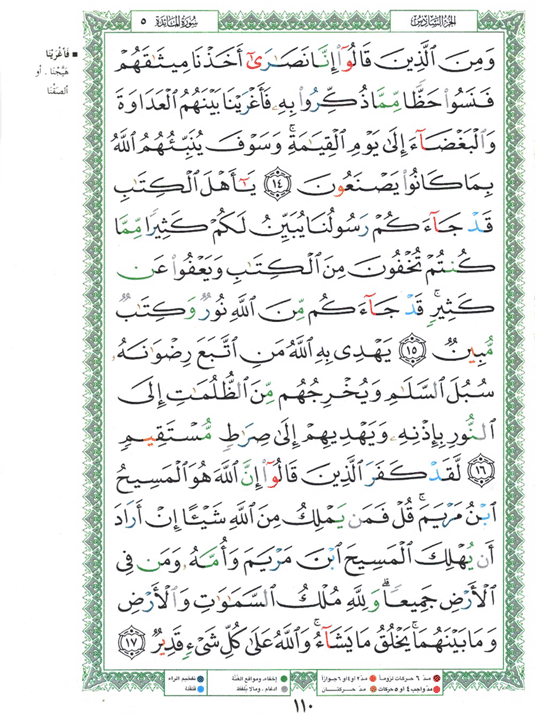 الجزء السادس
سورة المائدة ٥
وَمِنَ ٱلَّذِينَ قَالُوٓا۟ إِنَّا نَصَـٰرَىٰٓ أَخَذْنَا مِيثَـٰقَهُمْ
فَنَسُوا۟ حَظًّا مِّمَّا ذُكِّرُوا۟ بِهِۦ فَأَغْرَيْنَا بَيْنَهُمُ ٱلْعَدَاوَةَ
وَٱلْبَغْضَآءَ إِلَىٰ يَوْمِ ٱلْقِيَـٰمَةِ ۚ وَسَوْفَ يُنَبِّئُهُمُ ٱللَّهُ
بِمَا كَانُوا۟ يَصْنَعُونَ ١٤ يَـٰٓأَهْلَ ٱلْكِتَـٰبِ
قَدْ جَآءَكُمْ رَسُولُنَا يُبَيِّنُ لَكُمْ كَثِيرًا مِّمَّا
كُنتُمْ تُخْفُونَ مِنَ ٱلْكِتَـٰبِ وَيَعْفُوا۟ عَن
كَثِيرٍ ۚ قَدْ جَآءَكُم مِّنَ ٱللَّهِ نُورٌ وَكِتَـٰبٌ
مُّبِينٌ ١٥ يَهْدِى بِهِ ٱللَّهُ مَنِ ٱتَّبَعَ رِضْوَٰنَهُۥ
سُبُلَ ٱلسَّلَـٰمِ وَيُخْرِجُهُم مِّنَ ٱلظُّلُمَـٰتِ إِلَى
ٱلنُّورِ بِإِذْنِهِۦ وَيَهْدِيهِمْ إِلَىٰ صِرَٰطٍ مُّسْتَقِيمٍ
١٦ لَّقَدْ كَفَرَ ٱلَّذِينَ قَالُوٓا۟ إِنَّ ٱللَّهَ هُوَ ٱلْمَسِيحُ
ٱبْنُ مَرْيَمَ ۚ قُلْ فَمَن يَمْلِكُ مِنَ ٱللَّهِ شَيْـًٔا إِنْ أَرَادَ
أَن يُهْلِكَ ٱلْمَسِيحَ ٱبْنَ مَرْيَمَ وَأُمَّهُۥ وَمَن فِى
ٱلْأَرْضِ جَمِيعًا ۗ وَلِلَّهِ مُلْكُ ٱلسَّمَـٰوَٰتِ وَٱلْأَرْضِ
وَمَا بَيْنَهُمَا ۚ يَخْلُقُ مَا يَشَآءُ ۚ وَٱللَّهُ عَلَىٰ كُلِّ شَىْءٍ قَدِيرٌ ١٧
فَأَغْرَيْنَا
هَيَّجْنَا . أو
ألصَقْنَا
مدّ ٦ حركات لزوماً مدّ ٢ أو ٤ أو ٦ جوازاً إخفاء، ومواقع الغُنَّة تفخيم الراء
مدّ واجب ٤ أو ٥ حركات مدّ حركتان ادغام، وما لا يُلفظ قلقلة
١١٠